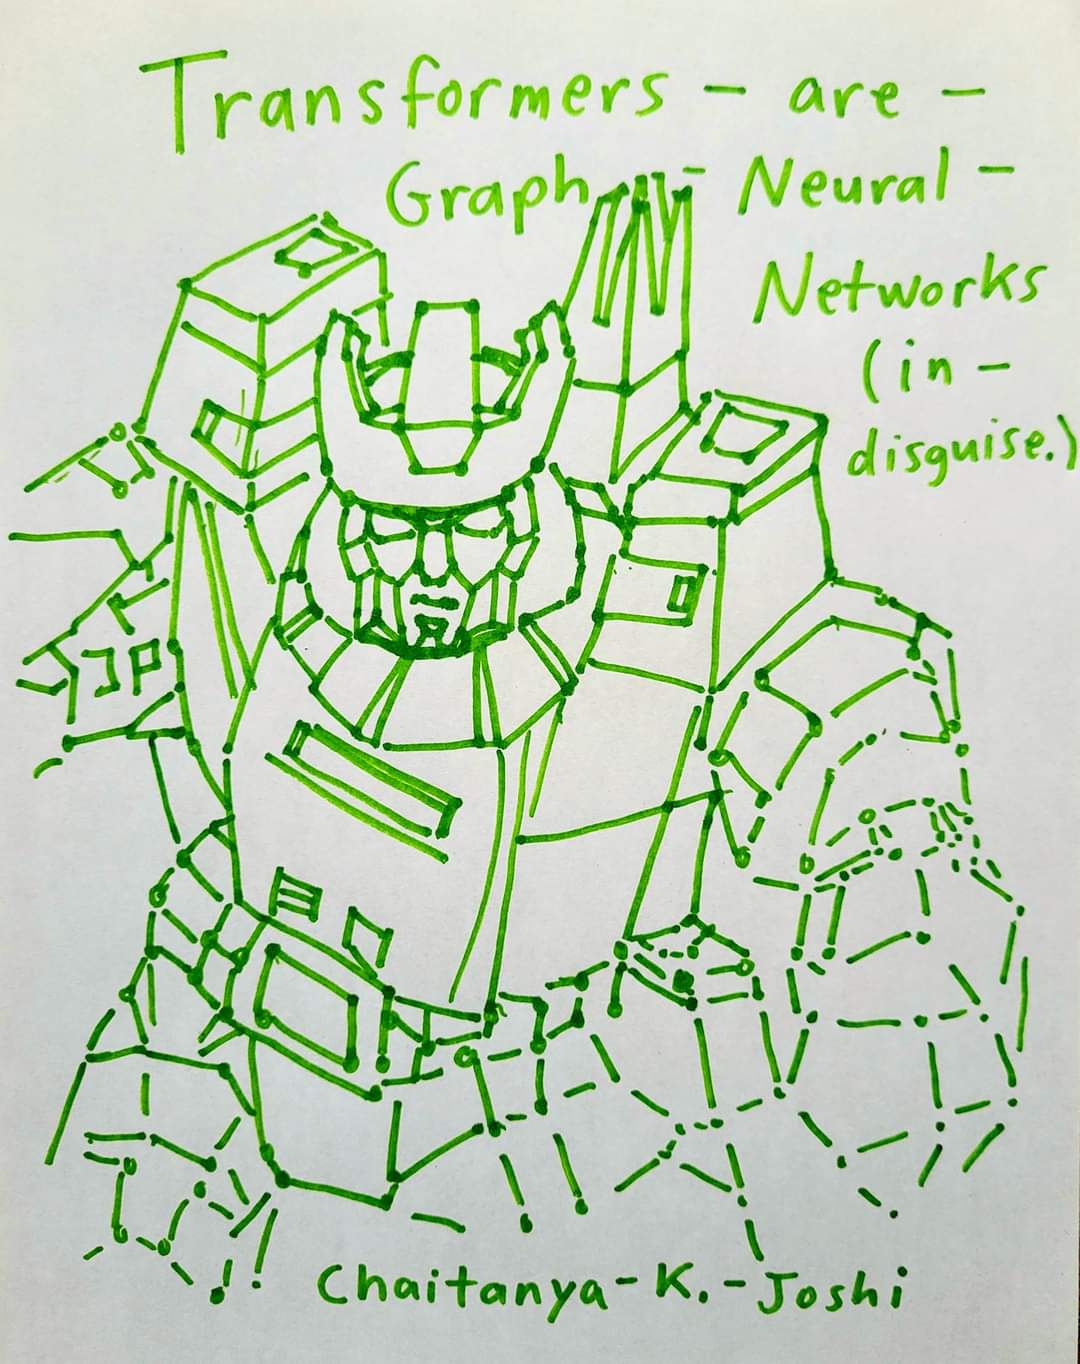 Transformers - are -
Graph - Neural -
Networks
(in -
disguise.)
Chaitanya - K. - Joshi